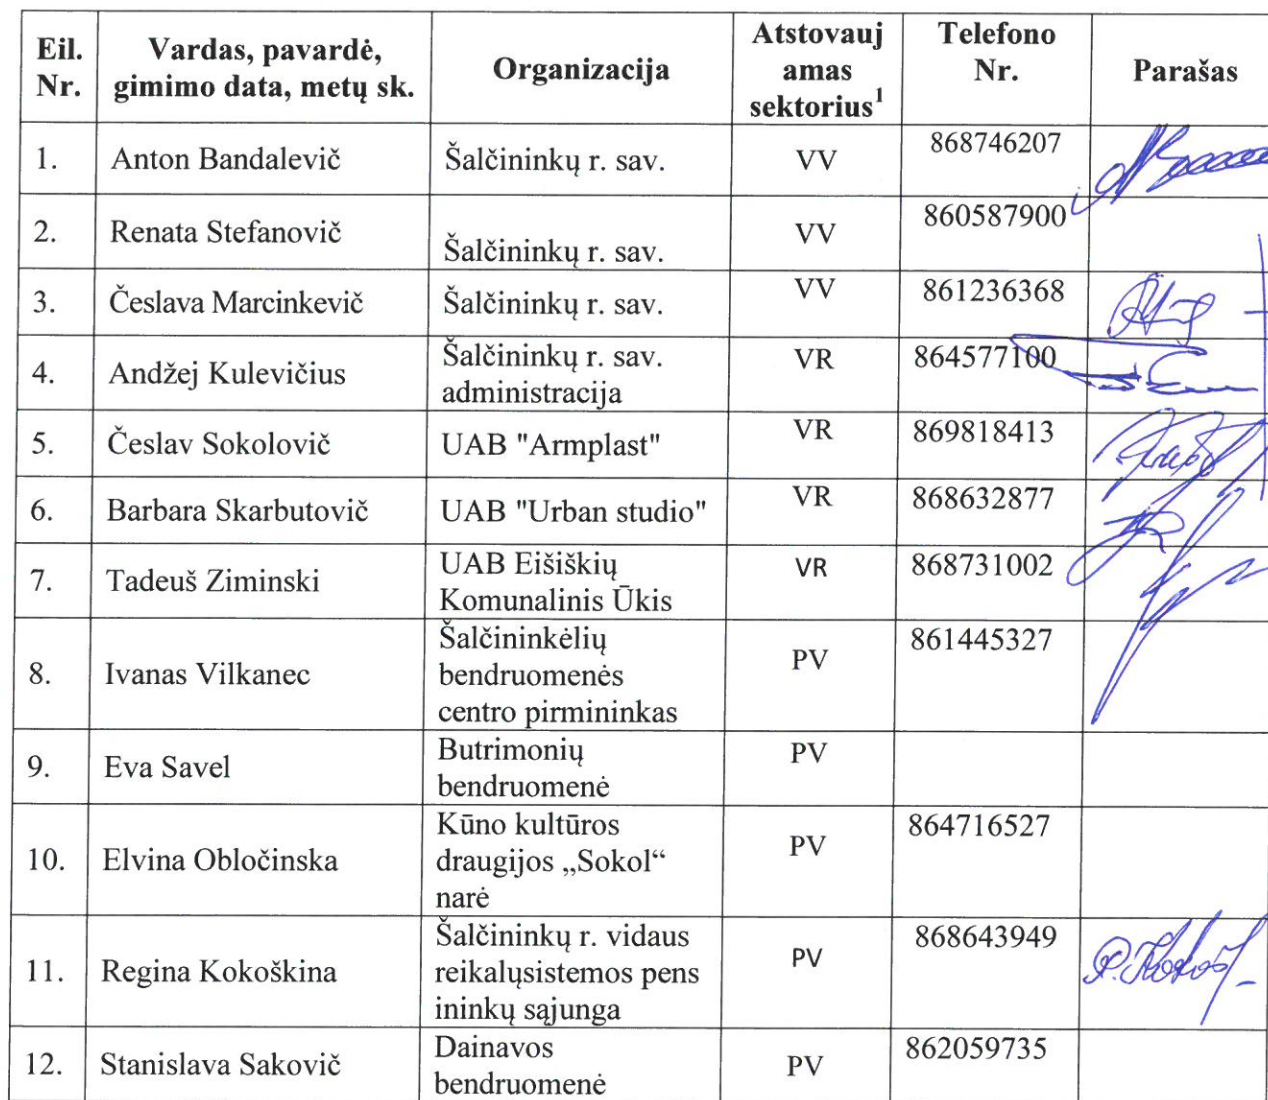 Eil. Nr. Vardas, pavardė, gimimo data, metų sk. Organizacija Atstovauj amas sektorius1 Telefono Nr. Parašas
1. Anton Bandalevič Šalčininkų r. sav. VV 868746207
2. Renata Stefanovič Šalčininkų r. sav. VV 860587900
3. Česlava Marcinkevič Šalčininkų r. sav. VV 861236368
4. Andžej Kulevičius Šalčininkų r. sav. administracija VR 864577100
5. Česlav Sokolovič UAB "Armplast" VR 869818413
6. Barbara Skarbutovič UAB "Urban studio" VR 868632877
7. Tadeuš Ziminski UAB Eišiškių Komunalinis Ūkis VR 868731002
8. Ivanas Vilkanec Šalčininkėlių bendruomenės centro pirmininkas PV 861445327
9. Eva Savel Butrimonių bendruomenė PV
10. Elvina Obločinska Kūno kultūros draugijos „Sokol“ narė PV 864716527
11. Regina Kokoškina Šalčininkų r. vidaus reikalųsistemos pens ininkų sąjunga PV 868643949
12. Stanislava Sakovič Dainavos bendruomenė PV 862059735